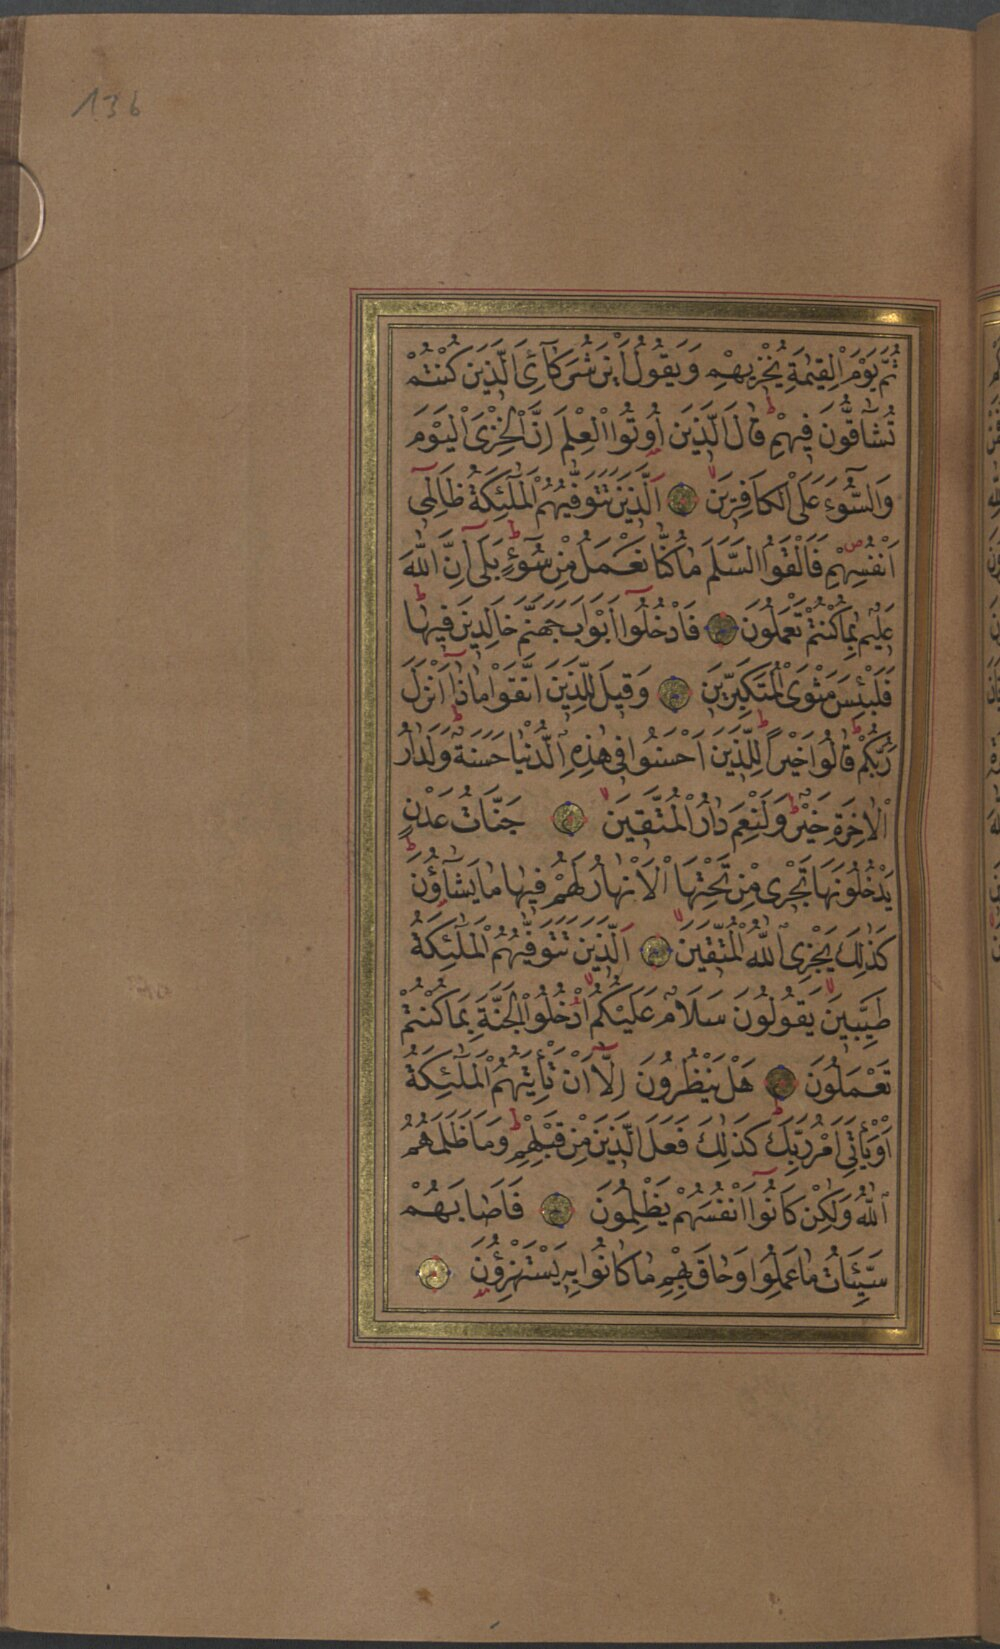 136
ثُمَّ يَوْمَ الْقِيٰمَةِ يُخْزِيهِمْ وَيَقُولُ اَيْنَ شُرَكَآئِىَ الَّذِينَ كُنْتُمْ
تُشَآقُّونَ فِيهِمْ قَالَ الَّذِينَ اُوتُوا الْعِلْمَ اِنَّ الْخِزْىَ الْيَوْمَ
وَالسُّوٓءَ عَلَى الْكَافِرِينَ الَّذِينَ تَتَوَفّٰيهُمُ الْمَلٰٓئِكَةُ ظَالِمِىٓ
اَنْفُسِهِمْ فَاَلْقَوُا السَّلَمَ مَا كُنَّا نَعْمَلُ مِنْ سُوٓءٍ بَلٰٓى اِنَّ اللّٰهَ
عَلِيمٌ بِمَا كُنْتُمْ تَعْمَلُونَ فَادْخُلُوٓا اَبْوَابَ جَهَنَّمَ خَالِدِينَ فِيهَا
فَلَبِئْسَ مَثْوَى الْمُتَكَبِّرِينَ وَقِيلَ لِلَّذِينَ اتَّقَوْا مَاذَٓا اَنْزَلَ
رَبُّكُمْ قَالُوا خَيْرًا لِلَّذِينَ اَحْسَنُوا فِى هٰذِهِ الدُّنْيَا حَسَنَةٌ وَلَدَارُ
الْاٰخِرَةِ خَيْرٌ وَلَنِعْمَ دَارُ الْمُتَّقِينَ جَنَّاتُ عَدْنٍ
يَدْخُلُونَهَا تَجْرِى مِنْ تَحْتِهَا الْاَنْهَارُ لَهُمْ فِيهَا مَا يَشَآؤُنَ
كَذٰلِكَ يَجْزِى اللّٰهُ الْمُتَّقِينَ الَّذِينَ تَتَوَفّٰيهُمُ الْمَلٰٓئِكَةُ
طَيِّبِينَ يَقُولُونَ سَلَامٌ عَلَيْكُمُ ادْخُلُوا الْجَنَّةَ بِمَا كُنْتُمْ
تَعْمَلُونَ هَلْ يَنْظُرُونَ اِلَّٓا اَنْ تَأْتِيَهُمُ الْمَلٰٓئِكَةُ
اَوْ يَأْتِىَ اَمْرُ رَبِّكَ كَذٰلِكَ فَعَلَ الَّذِينَ مِنْ قَبْلِهِمْ وَمَا ظَلَمَهُمُ
اللّٰهُ وَلٰكِنْ كَانُوٓا اَنْفُسَهُمْ يَظْلِمُونَ فَاَصَابَهُمْ
سَيِّئَاتُ مَا عَمِلُوا وَحَاقَ بِهِمْ مَا كَانُوا بِهِ يَسْتَهْزِؤُنَ